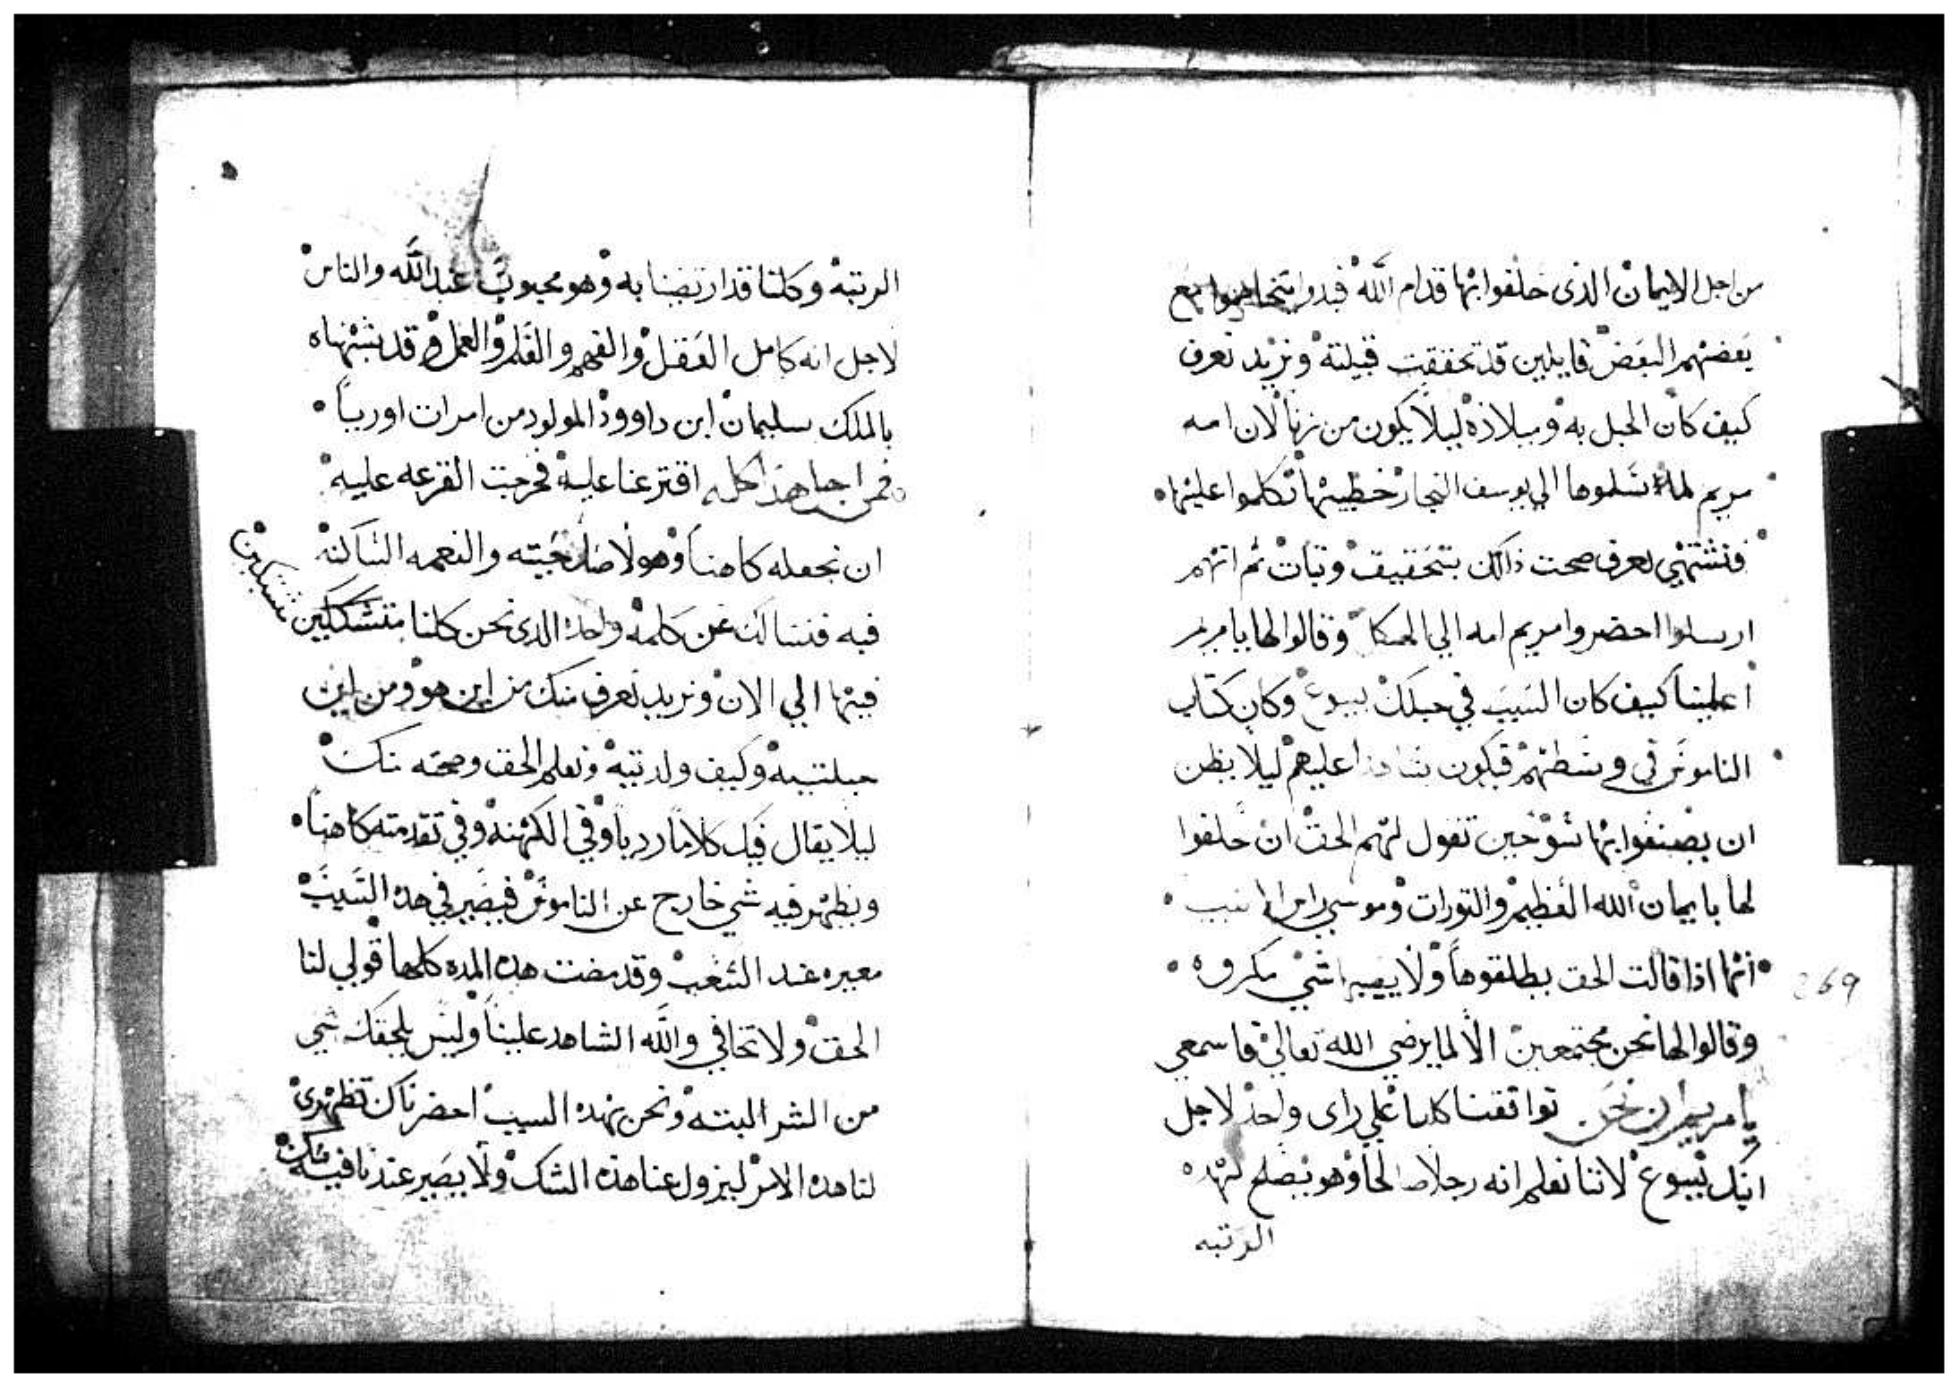 من اجل الايمان الذى حلفوا بها قدام الله فبدوا يتخاصموا مع
بعضهم البعض قايلين قد تحققت قبيلته ونريد نعرف
كيف كان الحبل به وميلاده ليلا يكون من زنا لان امه
مريم لما تسلموها الي يوسف النجار خطيبها تكلموا عليها
فنشتهي نعرف صحت ذالك بتحقيق وتبات ثم انهم
ارسلوا احضروا مريم امه الي الهيكل وقالوا لها يا مريم
اعلمينا كيف كان السبب في حبلك بيسوع وكان كتاب
الناموس في وسطهم فيكون شاهدا عليهم ليلا يظن
ان يصنعوا بها سو حين تقول لهم الحق ان حلفوا
لها بايمان الله العظيم والتورات وموسي راس الانبيا
انها اذا قالت الحق يطلقوها ولا يصيبها شي مكروه
269
وقالوا لها نحن مجتمعين الا لما يرضي الله تعالي فاسمعي
يا مريم ان نحن توافقنا كلنا علي راى واحد لاجل
ابنك يسوع لاننا نعلم انه رجلا صالحا وهو يصلح لهذه
الرتبه
الرتبه وكلنا قد ارتضينا به وهو محبوب عند الله والناس
لاجل انه كامل العقل والفهم والعلم والعمل وقد يشبهناه
بالملك سليمان ابن داوود المولود من امرات اوريا
فمن اجل هذا كله اقترعنا عليه فخرجت القرعه عليه
ان نجعله كاهنا وهولا صلاحيته والنعمه الساكنه
فيه فنسالك عن كلمه واحده الذى نحن كلنا متشككين
متشككين
فيها الي الان ونريد نعرف منك من اين هو ومن اين
حبلتيه وكيف ولدتيه ونعلم الحق وصحته منك
ليلا يقال فيك كلاما رديا وفي الكهنه وفي تقدمته كاهنا
ويظهر فيه شي خارج عن الناموس فيصير في هذه السبب
معيره عند الشعب وقد مضت هذه المده كلها قولي لنا
الحق ولا تخافي والله الشاهد علينا وليس يلحقك شي
من الشر البته ونحن بهذه السبب احضرناك تظهرى
لنا هذه الامر ليزول عنا هذه الشك ولا يصير عندنا فيه شك